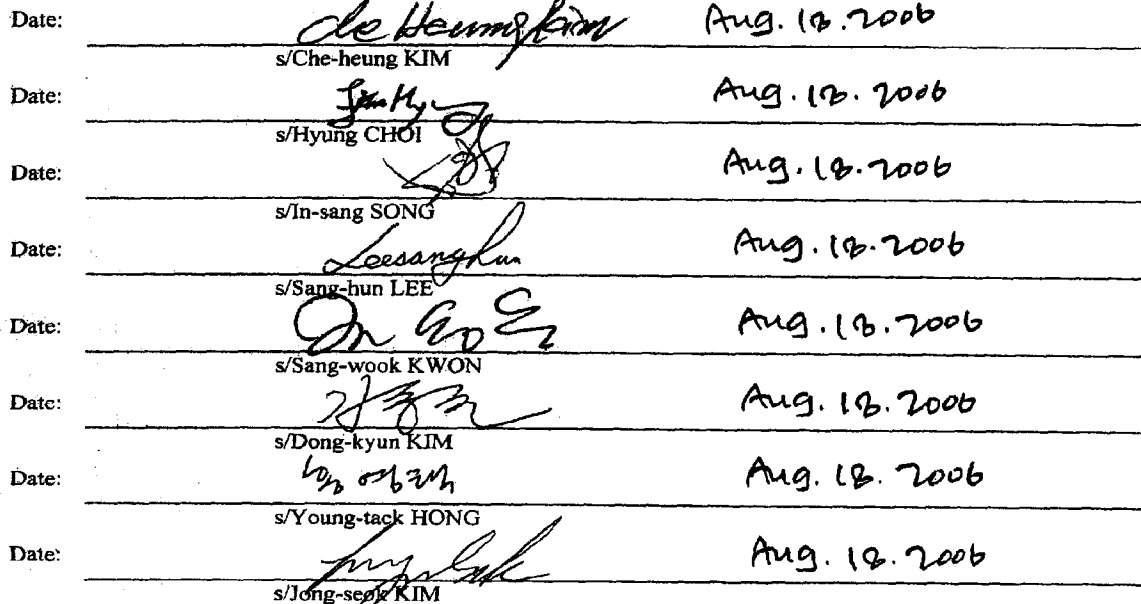 Date: Che Heung Kim Aug. 18. 2006
s/Che-heung KIM
Date: Aug. 18. 2006
s/Hyung CHOI
Date: Aug. 18. 2006
s/In-sang SONG
Date: Leesanghun Aug. 18. 2006
s/Sang-hun LEE
Date: Aug. 18. 2006
s/Sang-wook KWON
Date: 김동균 Aug. 18. 2006
s/Dong-kyun KIM
Date: 홍영택 Aug. 18. 2006
s/Young-tack HONG
Date: Aug. 18. 2006
s/Jong-seok KIM